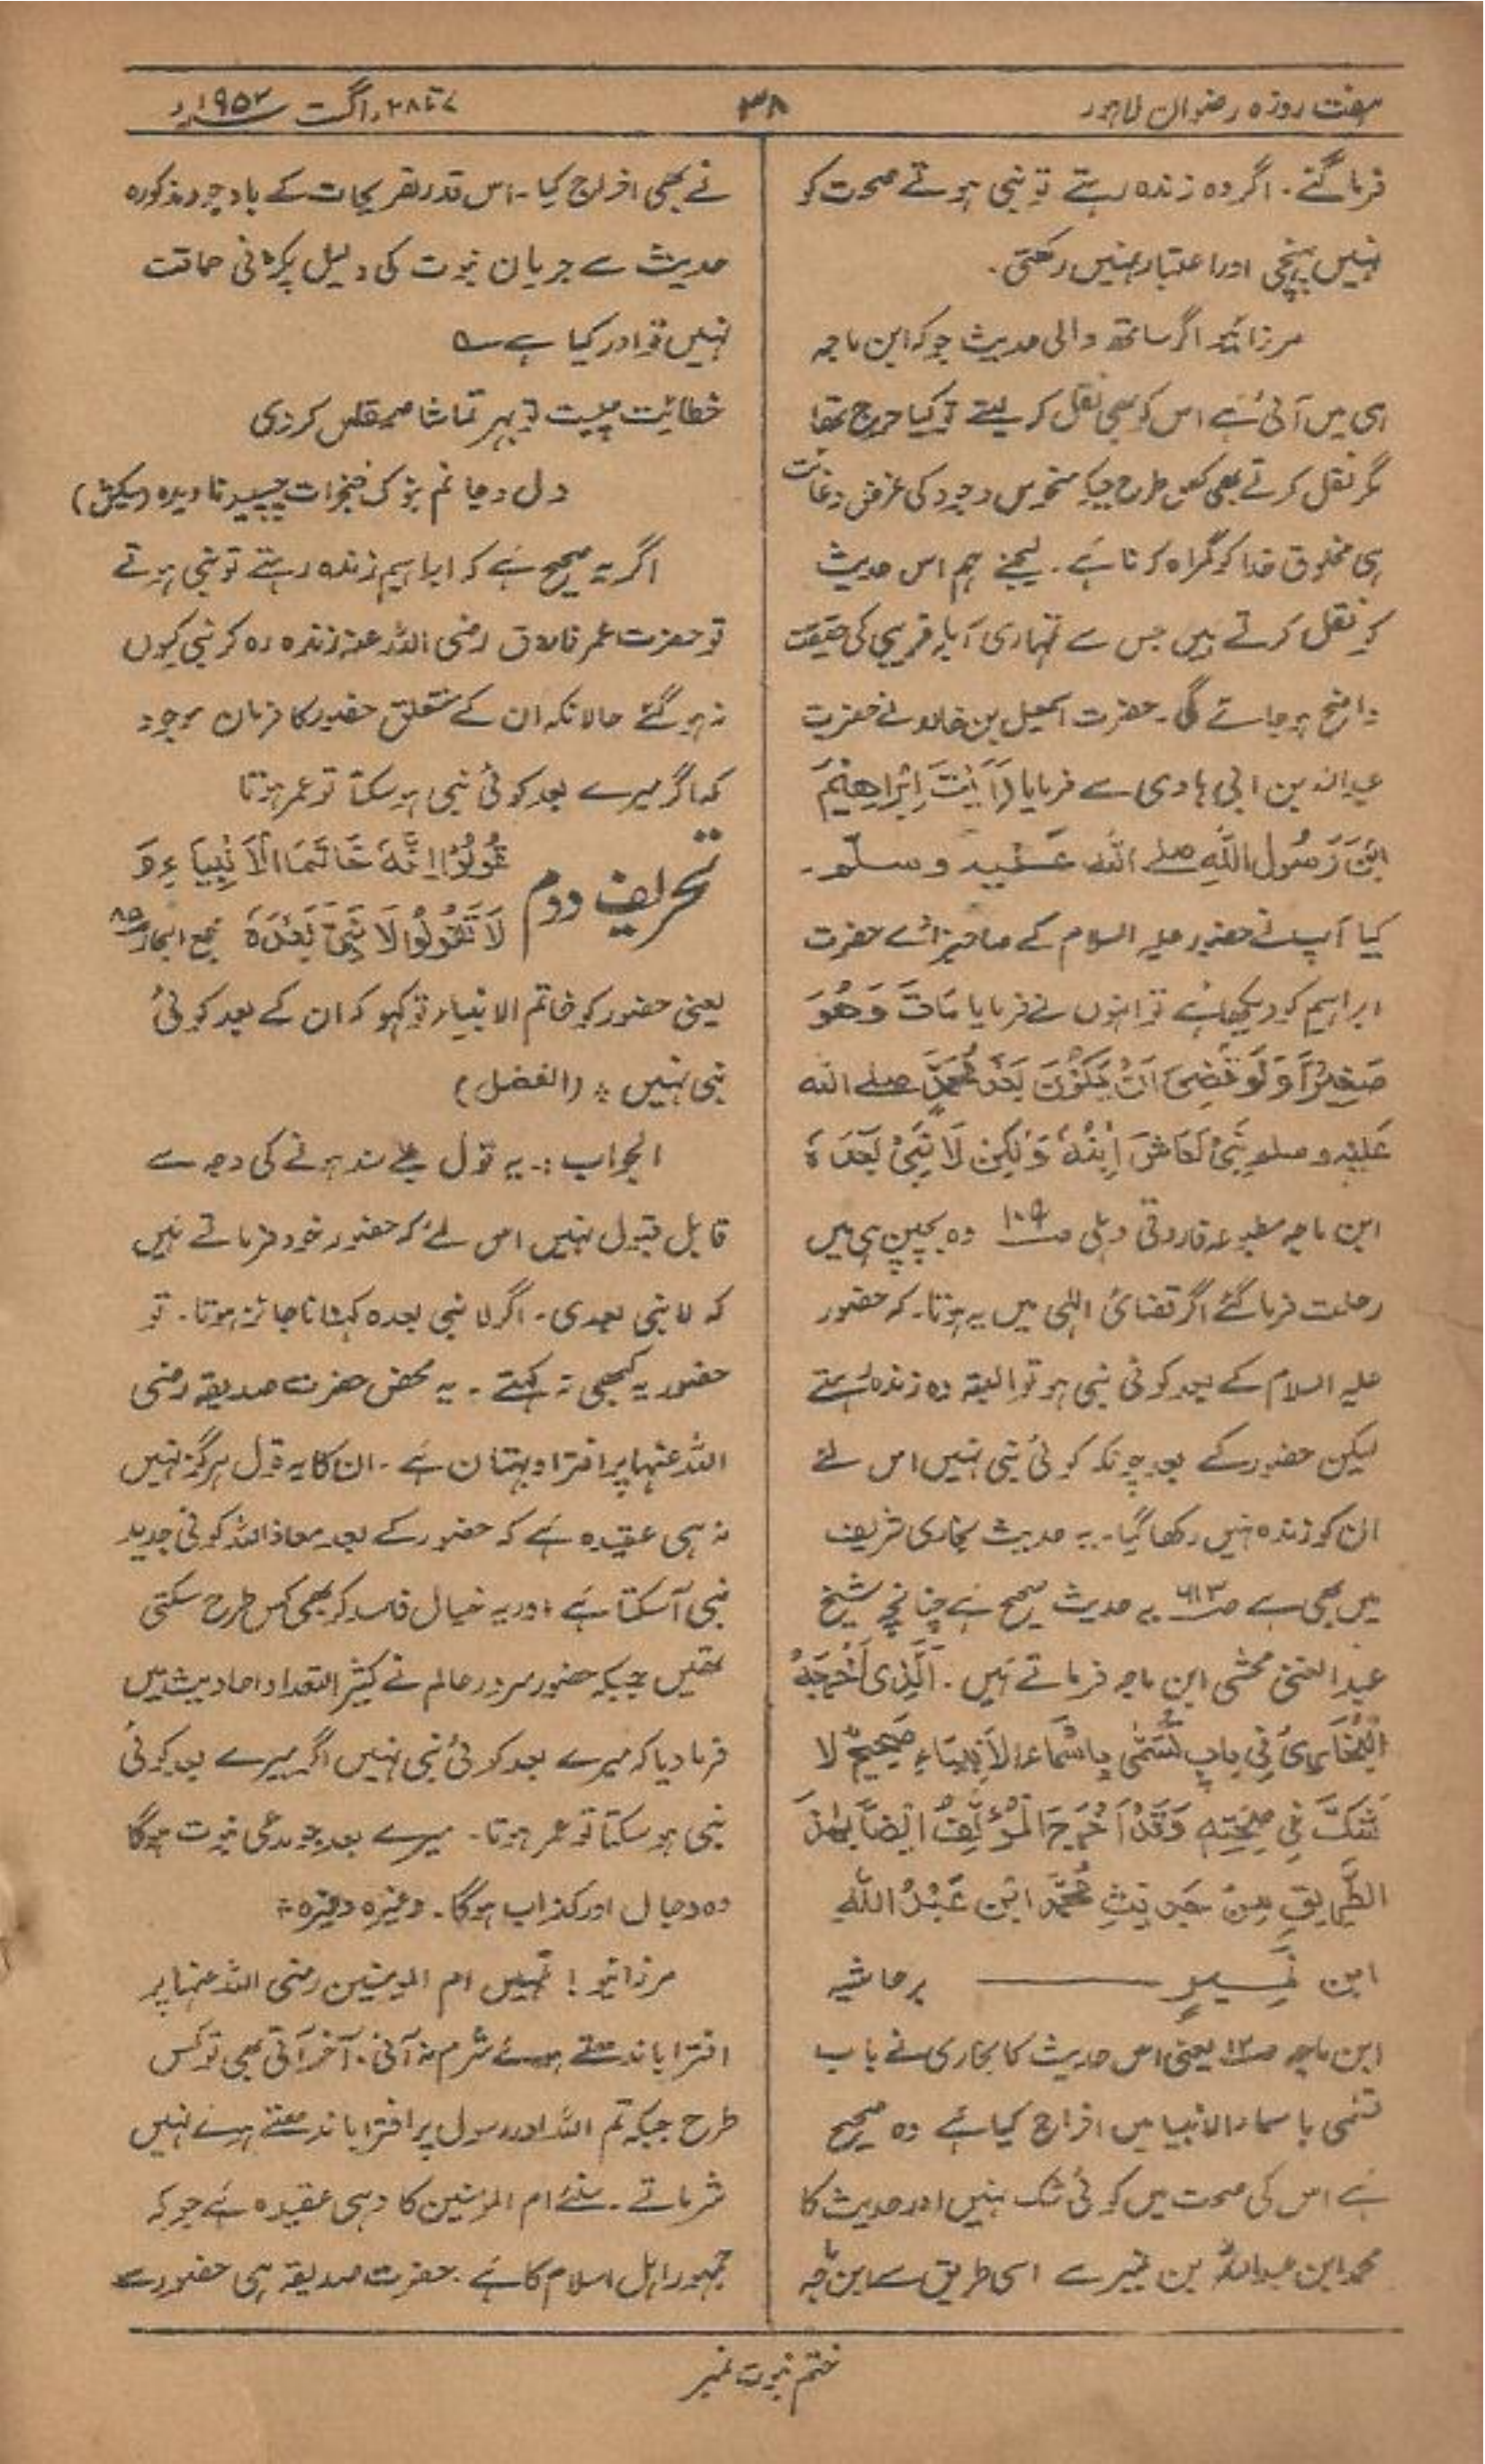 ہفت روزہ رضوان لاہور
۳۸
۷ تا ۲۸، اگست ۱۹۵۲ء
فرما گئے۔ اگر وہ زندہ رہتے تو نبی ہوتے صحت کو
نہیں پہنچی اور اعتبار نہیں رکھتی۔
مرزائیو اگر ساتھ والی حدیث جو کہ ابن ماجہ
ہی میں آئی ہے اس کو بھی نقل کر لیتے تو کیا حرج تھا
مگر نقل کرتے بھی کس طرح جبکہ منحوس وجود کی غرض و غائت
ہی مخلوق خدا کو گمراہ کرنا ہے۔ لیجئے ہم اس حدیث
کو نقل کرتے ہیں جس سے تمہاری ابلہ فریبی کی حقیقت
واضح ہو جائے گی۔ حضرت اسمعیل بن خالد نے حضرت
عبداللہ بن ابی ہادی سے فرمایا (أَرَأَيْتَ إِبْرَاهِيْمَ
ابْنَ رَسُولِ اللّٰهِ صلے اللّٰه عليه وسلّم۔
کیا آپ نے حضور علیہ السلام کے صاحبزادے حضرت
ابراہیم کو دیکھا ہے تو انہوں نے فرمایا مَاتَ وَهُوَ
صَغِيْرٌ وَلَوْ قُضِيَ اَنْ يَكُوْنَ بَعْدَ مُحَمَّدٍ صلے اللّٰه
عَلَيْهِ وسلم نَبِيٌّ لَعَاشَ اِبْنُهٗ وَلٰكِنْ لَا نَبِيَّ بَعْدَهٗ
ابن ماجہ مطبوعہ فاروقی دہلی صـ۱۰۹ وہ بچپن ہی میں
رحلت فرما گئے اگر قضائ الٰہی میں یہ ہوتا۔ کہ حضور
علیہ السلام کے بعد کوئی نبی ہو تو البتہ وہ زندہ رہتے
لیکن حضور کے بعد چونکہ کوئی نبی نہیں اس لئے
ان کو زندہ نہیں رکھا گیا۔ یہ حدیث بخاری شریف
میں بھی ہے صـ یہ حدیث صحیح ہے چنانچہ شیخ
عبدالغنی محشی ابن ماجہ فرماتے ہیں۔ اَلَّذِى اَخْرَجَهُ
الْبُخَارِىُّ فِى بَابِ تَسَمّٰى بِاَسْمَاءِ الْاَنْبِيَاءِ صَحِيْحٌ لَا
شَكَّ فِى صِحَّتِهٖ وَقَدْ اَخْرَجَ الْمُؤَلِّفُ اَيْضًا بِهٰذَا
الطَّرِيقِ مِنْ حَدِيْثِ مُحَمَّدِ ابْنِ عَبْدُ اللّٰهِ
ابن نُمَيرٍ ——— بر حاشیہ
ابن ماجہ صـ۱۲ یعنی اس حدیث کا بخاری نے باب
تسمی باسماء الانبیاء میں اخراج کیا ہے وہ صحیح
ہے اس کی صحت میں کوئی شک نہیں اور حدیث کا
محمد ابن عبداللہ بن نمیر سے اسی طریق سے ابن ماجہ
نے بھی اخراج کیا۔ اس قدر تصریحات کے باوجود مذکورہ
حدیث سے جریان نبوت کی دلیل پکڑنی حماقت
نہیں تو اور کیا ہے ؎
خطائیت
دل و جانم
اگر یہ صحیح ہے کہ ابراہیم زندہ رہتے تو نبی ہوتے
تو حضرت عمر فاروق رضی اللہ عنہ زندہ رہ کر نبی کیوں
نہ ہو گئے حالانکہ ان کے متعلق حضور کا فرمان موجود
کہ اگر میرے بعد کوئی نبی ہو سکتا تو عمر ہوتا
تحریف دوم
قُولُوْا اِنَّهٗ خَاتَمُ الْاَنْبِيَاءِ وَ
لَا تَقُوْلُوْا لَا نَبِيَّ بَعْدَهٗ مجمع البحار صـ۸۵
یعنی حضور کو خاتم الانبیاء تو کہو کہ ان کے بعد کوئی
نبی نہیں ۔ (الفضل)
الجواب :۔ یہ قول بے سند ہونے کی وجہ سے
قابل قبول نہیں اس لئے کہ حضور خود فرماتے ہیں
کہ لا نبی بعدی۔ اگر لا نبی بعدہ کہنا ناجائز ہوتا۔ تو
حضور یہ کبھی نہ کہتے ۔ یہ محض حضرت صدیقہ رضی
اللہ عنہا پر افترا و بہتان ہے ۔ ان کا یہ قول ہرگز نہیں
نہ ہی عقیدہ ہے کہ حضور کے بعد معاذ اللہ کوئی جدید
نبی آ سکتا ہے اور یہ خیال فاسد کر بھی کس طرح سکتی
تھیں جبکہ حضور سرور عالم نے کثیر التعداد احادیث میں
فرما دیا کہ میرے بعد کوئی نبی نہیں اگر میرے بعد کوئی
نبی ہو سکتا تو عمر ہوتا۔ میرے بعد جو مدعی نبوت ہوگا
وہ دجال اور کذاب ہوگا۔ وغیرہ وغیرہ۔
مرزائیو! تمہیں ام المومنین رضی اللہ عنہا پر
افترا باندھتے ہوئے شرم نہ آئی۔ آخر آتی بھی تو کس
طرح جبکہ تم اللہ اور رسول پر افترا باندھتے ہوئے نہیں
شرماتے ۔ سنئے ام المومنین کا وہی عقیدہ ہے جو کہ
جمہور اہل اسلام کا ہے ۔ حضرت صدیقہ ہی حضور سے
ختم نبوت نمبر